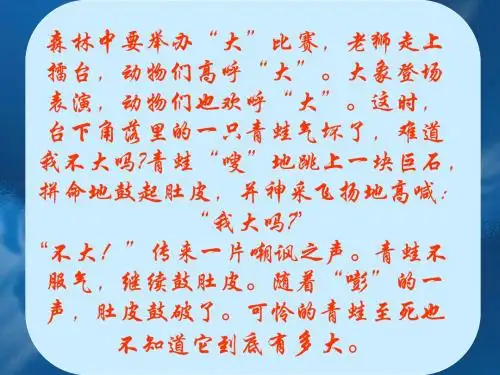 森林中要举办“大”比赛，老狮走上
擂台，动物们高呼“大”。大象登场
表演，动物们也欢呼“大”。这时，
台下角落里的一只青蛙气坏了，难道
我不大吗?青蛙“嗖”地跳上一块巨石，
拼命地鼓起肚皮，并神采飞扬地高喊：
“我大吗?”
“不大！”传来一片嘲讽之声。青蛙不
服气，继续鼓肚皮。随着“嘭”的一
声，肚皮鼓破了。可怜的青蛙至死也
不知道它到底有多大。